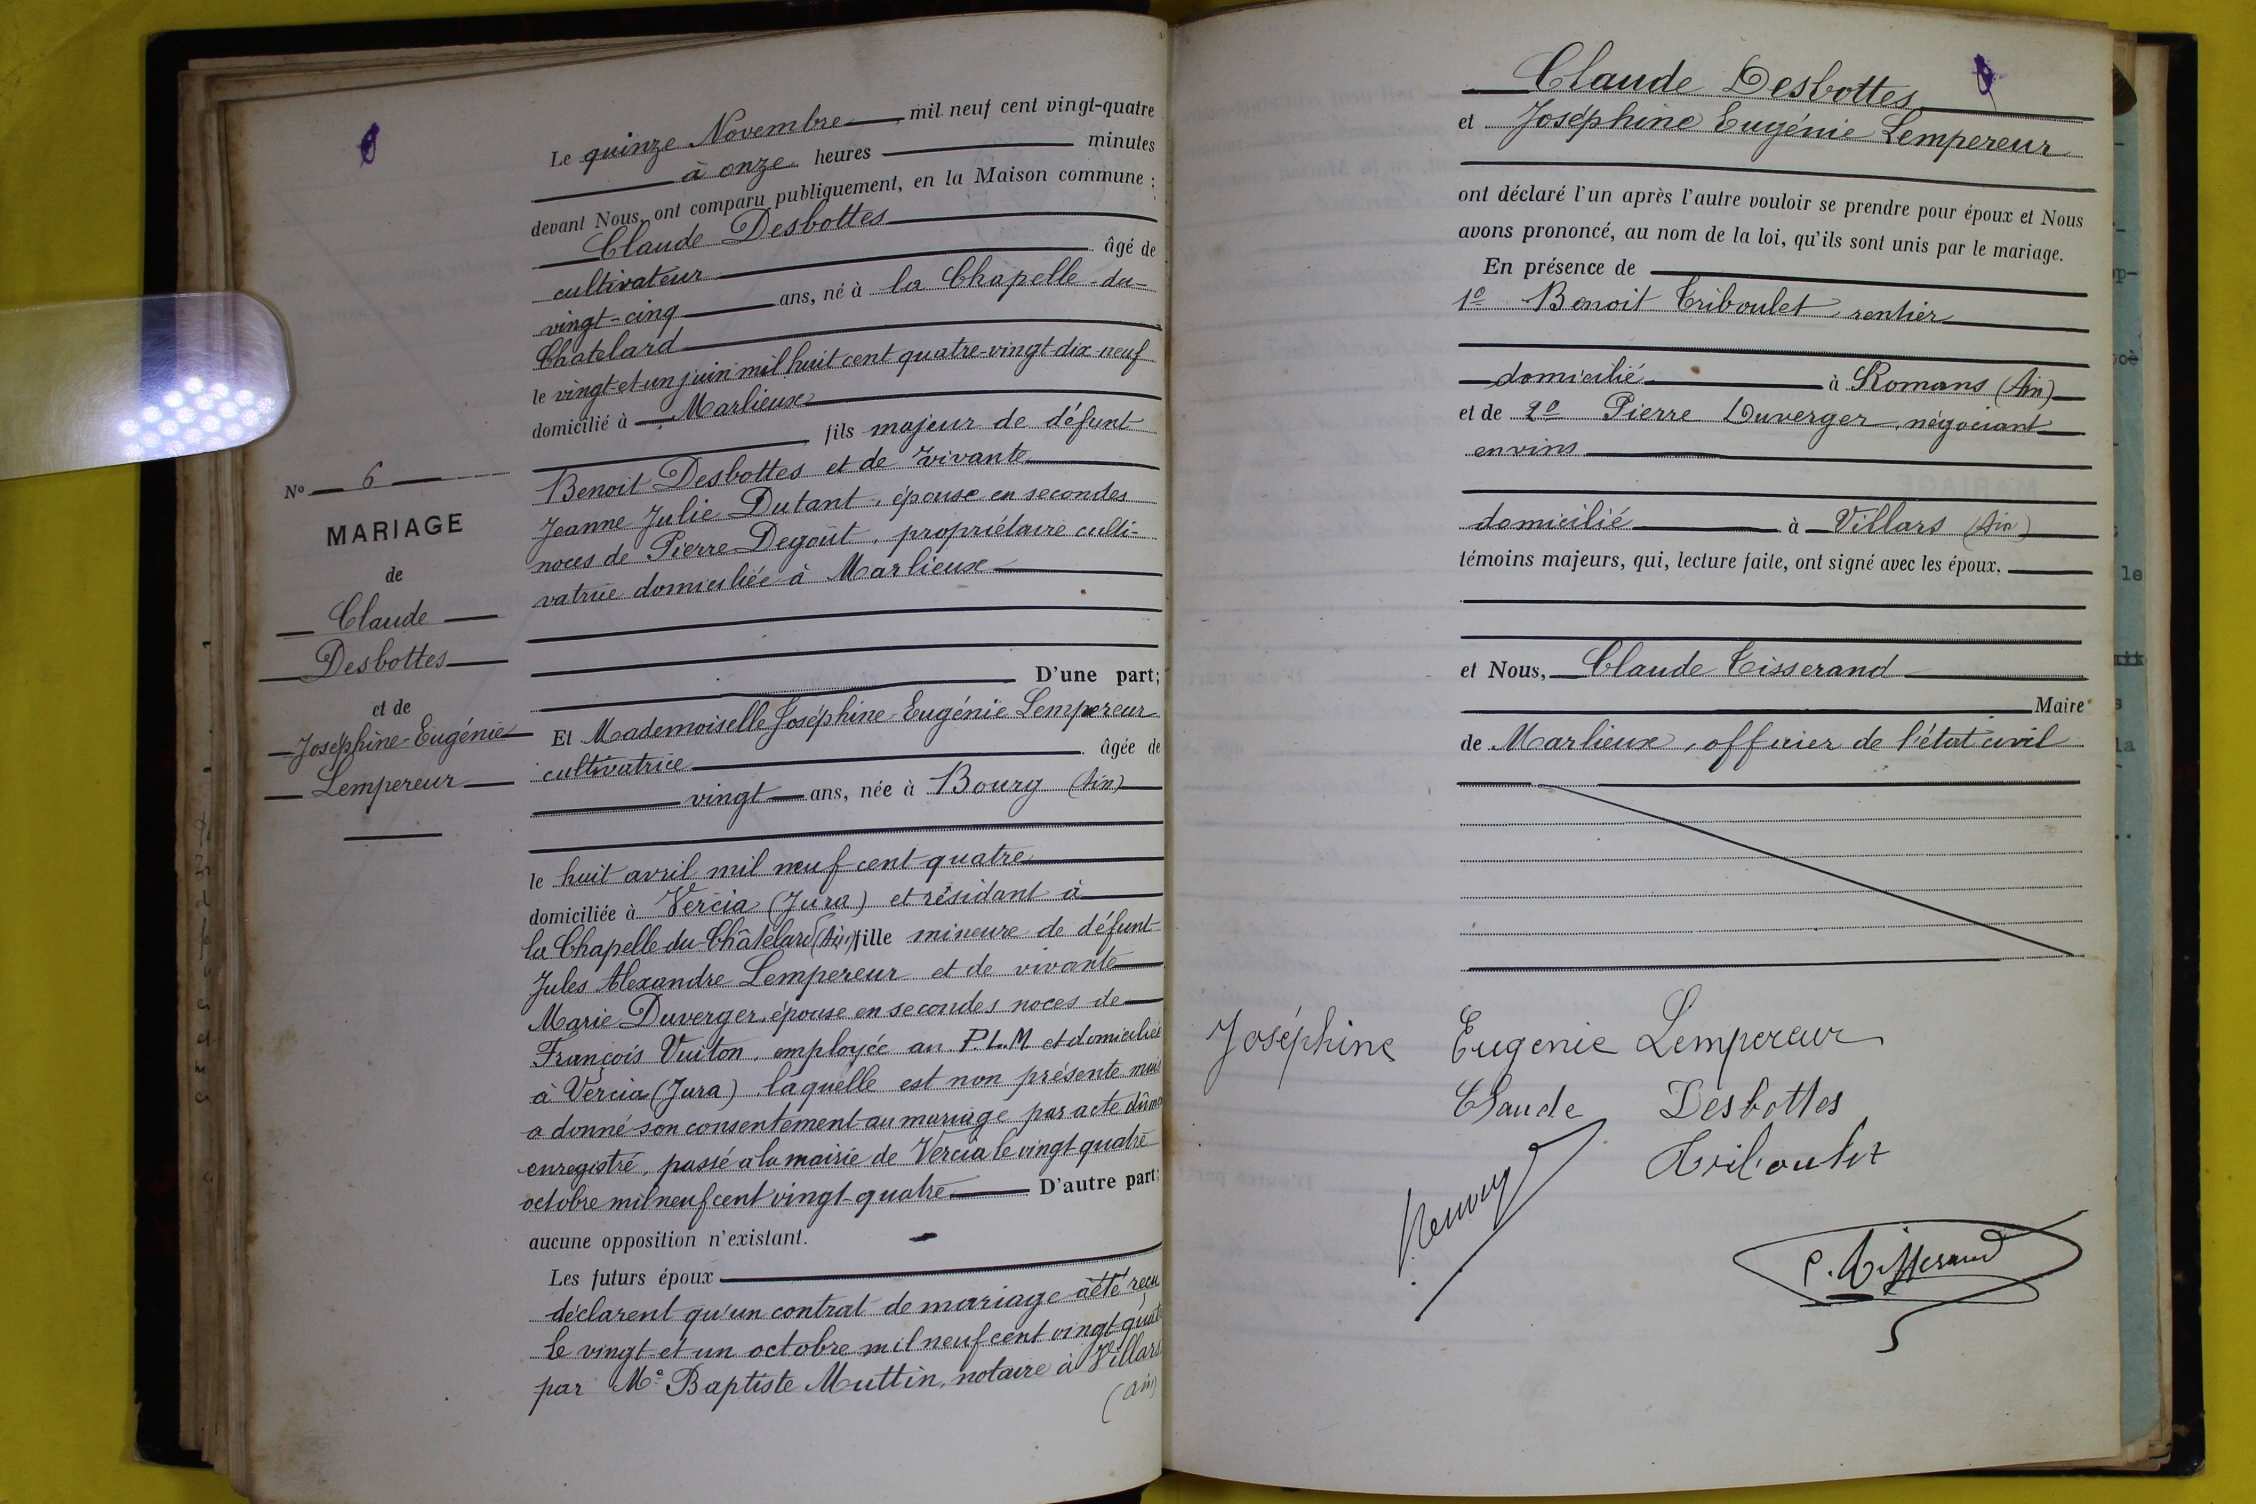 N° 6
MARIAGE
de
Claude
Desbottes
et de
Joséphine-Eugénie
Lempereur
Le quinze Novembre mil neuf cent vingt-quatre
à onze heures minutes
devant Nous, ont comparu publiquement, en la Maison commune :
Claude Desbottes
cultivateur âgé de
vingt-cinq ans, né à la Chapelle-du-
Chatelard
le vingt-et-un juin mil huit cent quatre-vingt-dix-neuf
domicilié à Marlieux
fils majeur de défunt
Benoit Desbottes et de vivante
Jeanne Julie Dutant, épouse en secondes
noces de Pierre Degoût, propriétaire culti-
vatrice domiciliée à Marlieux
D'une part;
Et Mademoiselle Joséphine-Eugénie Lempereur
cultivatrice âgée de
vingt ans, née à Bourg (Ain)
le huit avril mil neuf cent quatre
domiciliée à Vercia (Jura) et résidant à
la Chapelle du Châtelard (Ain) fille mineure de défunt
Jules Alexandre Lempereur et de vivante
Marie Duverger, épouse en secondes noces de
François Vuiton, employée au P.L.M et domiciliée
à Vercia (Jura) laquelle est non présente mais
a donné son consentement au mariage par acte dûment
enregistré, passé a la mairie de Vercia le vingt quatre
octobre mil neuf cent vingt-quatre D'autre part;
aucune opposition n'existant.
Les futurs époux
déclarent qu'un contrat de mariage a été reçu
le vingt-et-un octobre mil neuf cent vingt-quatre
par Me Baptiste Muttin, notaire à Villars
(Ain)
Claude Desbottes
et Joséphine Eugénie Lempereur
ont déclaré l'un après l'autre vouloir se prendre pour époux et Nous
avons prononcé, au nom de la loi, qu'ils sont unis par le mariage.
En présence de
1° Benoit Triboulet rentier
domicilié à Romans (Ain)
et de 2° Pierre Duverger, négociant
en vins
domicilié à Villars (Ain)
témoins majeurs, qui, lecture faite, ont signé avec les époux.
et Nous, Claude Tisserand
Maire
de Marlieux, officier de l'état civil
Joséphine Eugenie Lempereur
Claude Desbottes
Triboulet
C. Tisserand